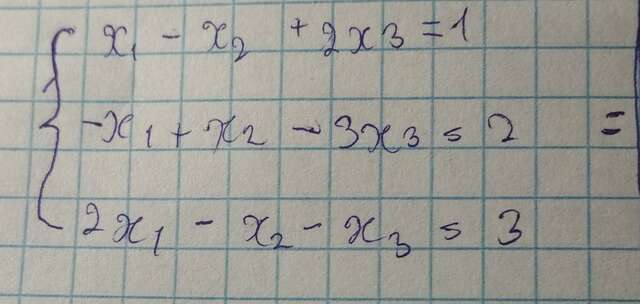 x₁ - x₂ + 2x₃ = 1
-x₁ + x₂ - 3x₃ = 2 =
2x₁ - x₂ - x₃ = 3